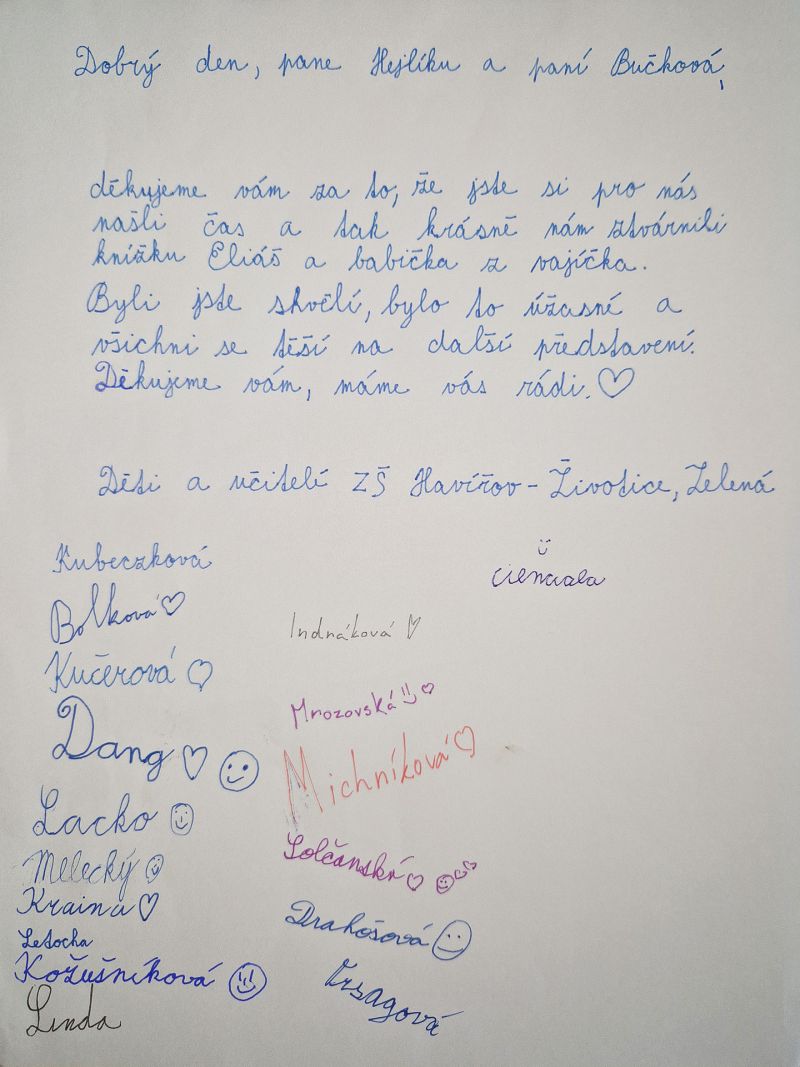 Dobrý den, pane Hejlíku a paní Bučková,
děkujeme vám za to, že jste si pro nás
našli čas a tak krásně nám ztvárnili
knížku Eliáš a babička z vajíčka.
Byli jste skvělí, bylo to úžasné a
všichni se těší na další představení.
Děkujeme vám, máme vás rádi.
Děti a učitelé ZŠ Havířov - Životice, Zelená
Kubeczková
Bolková
Kučerová
Dang
Lacko
Melecký
Kraina
Letocha
Kožušníková
Linda
Indráková
Mrozovská
Michníková
Solčanská
Drahošová
Cienciala